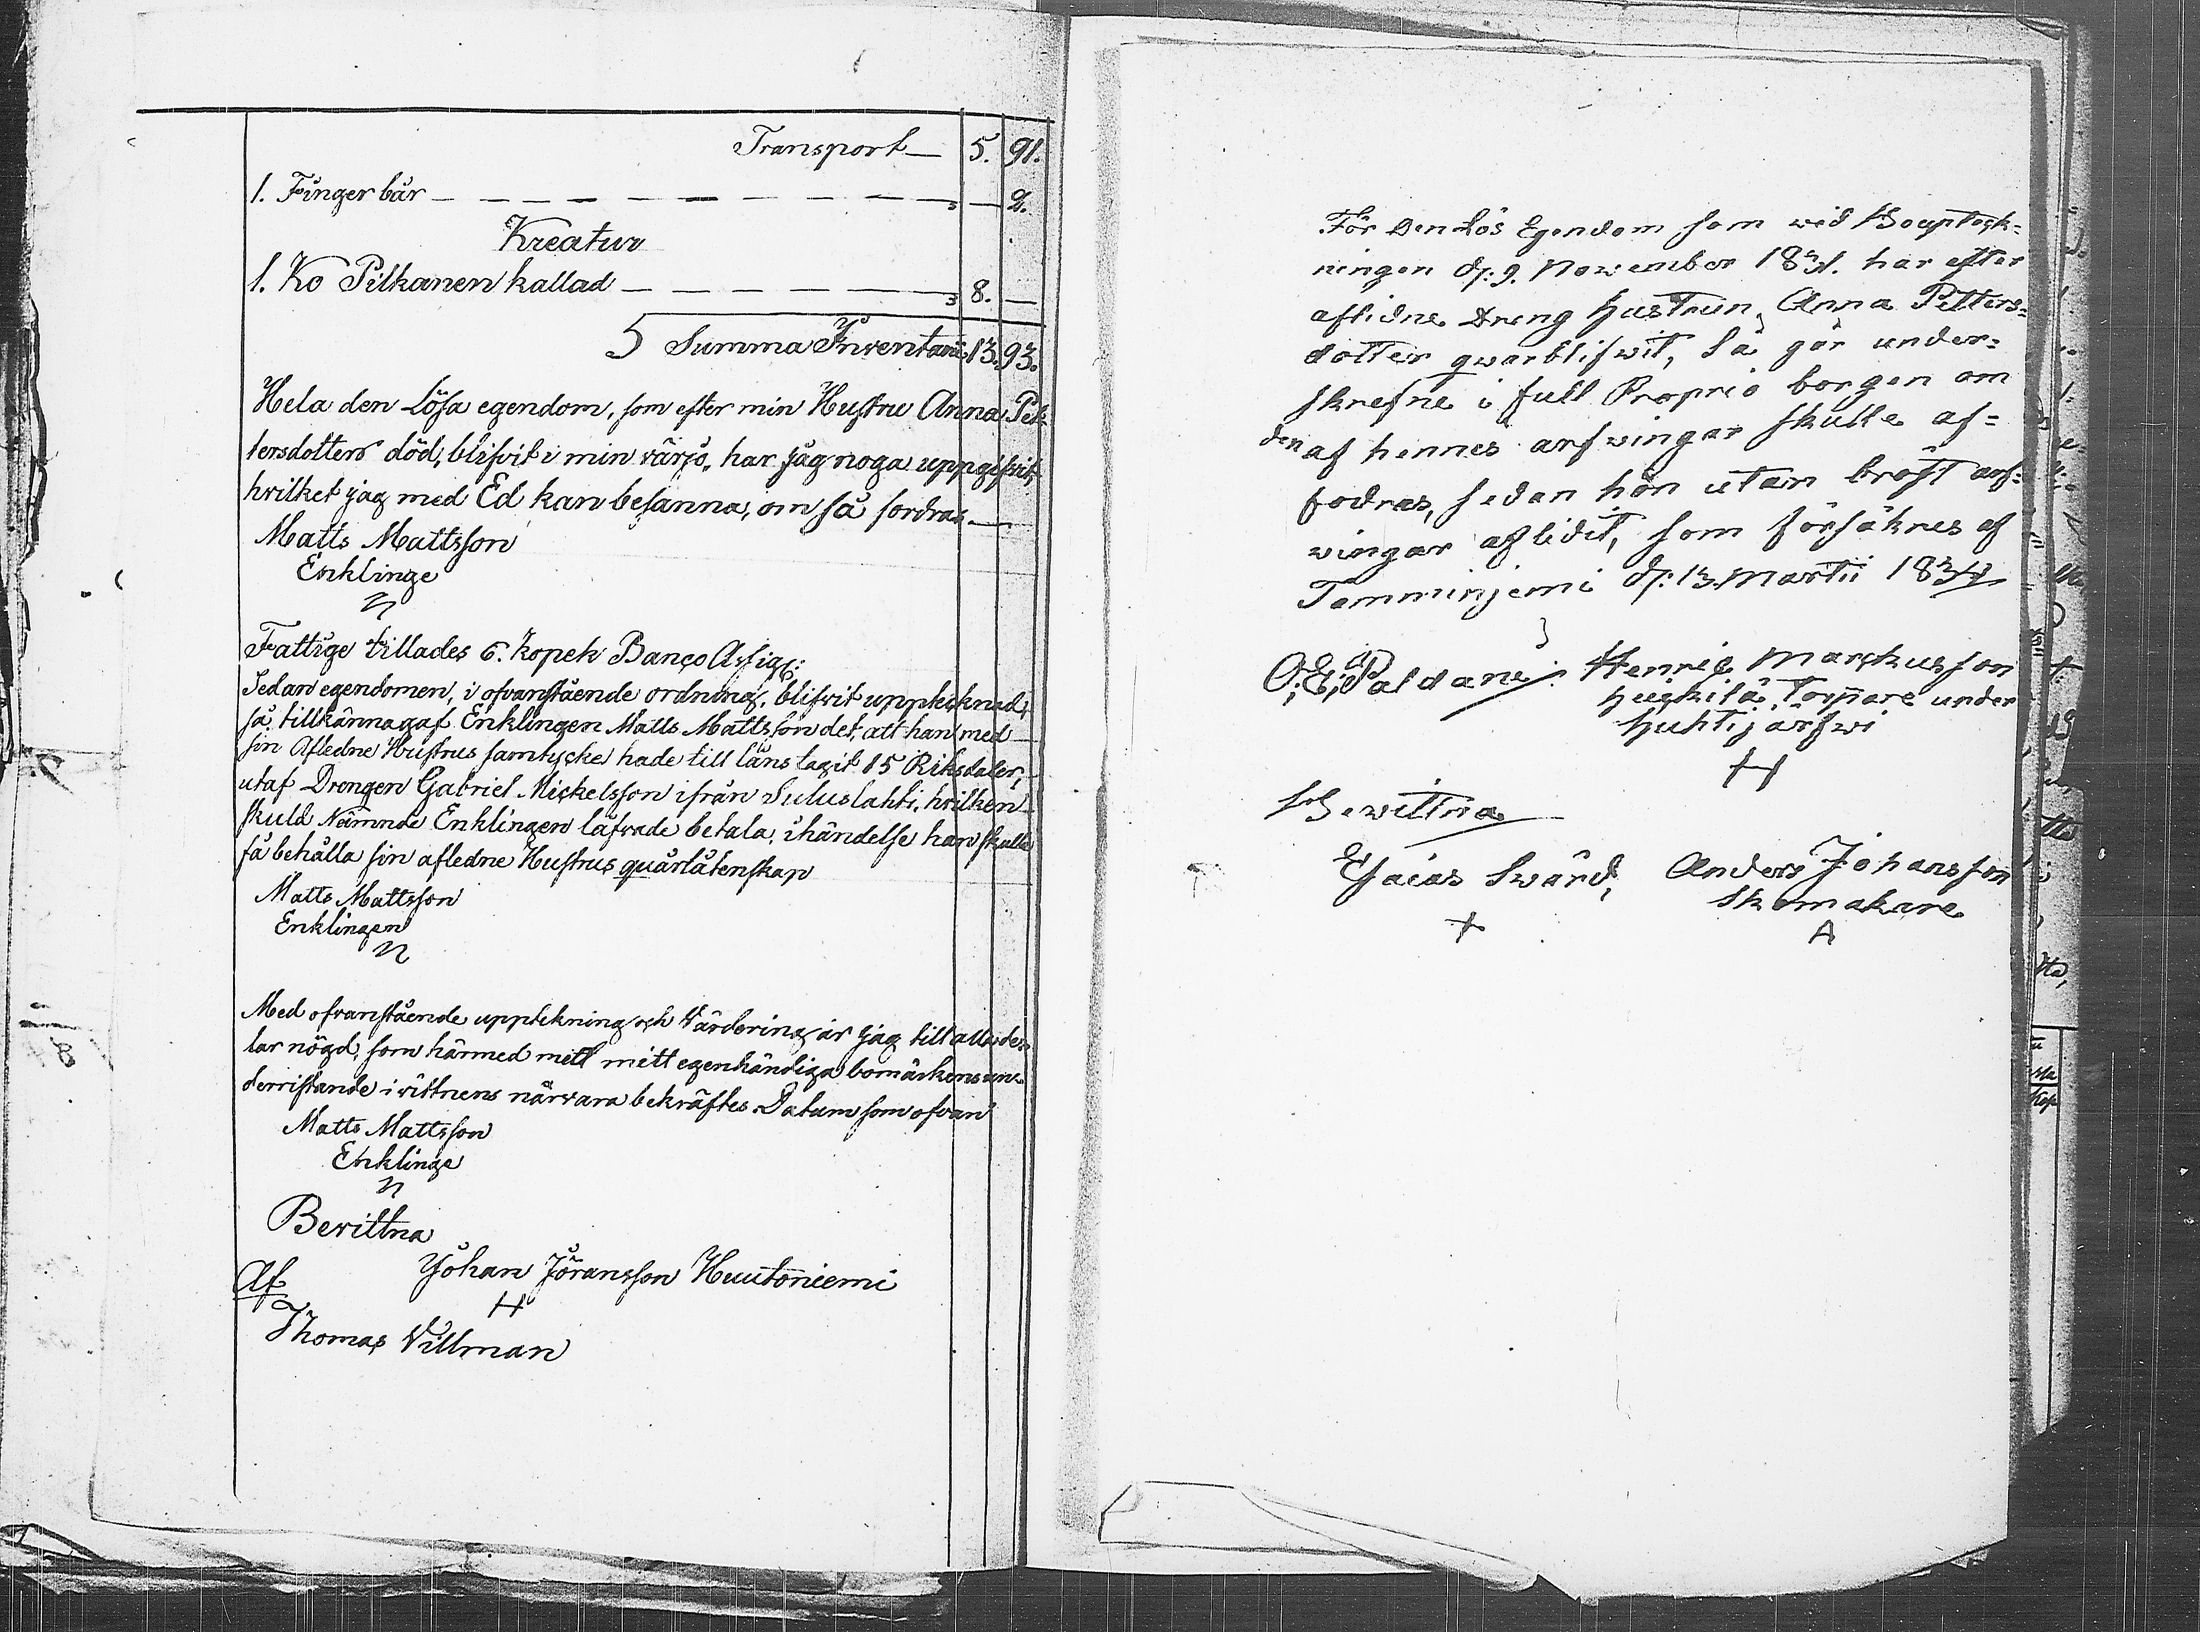 Transport — 5. 91.
1. Finger bår — — — — — — — — — „ — 2.
Kreatur
1. Ko Pilkanen kallad — — — — — „ 8. —
Summa Inventarii 13. 93.
Hela den Lösa egendom, som efter min Hustru Anna Pet-
tersdotters död, blifvit i min värjo, har jag noga uppgifvit,
hvilket jag med Ed kan besanna, om så fordras. —
Matts Mattsson
Enklinge
Fattige tillades 6. kopek Banço Assig:
Sedan egendomen, i ofvanstående ordning, blifvit uppteknad,
så tillkännagaf Enklingen Matts Mattsson det, att han med
sin Afledne Hustrus samtycke hade till låns tagit 15 Riksdaler,
utaf Drengen Gabriel Mickelsson ifrån Suluslahti, hvilken
skuld Nämnde Enklingen låfvade betala, ihändelse han skulle
få behålla sin afledne Hustrus quarlåtenskap
Matts Mattsson
Enklingen
Med ofvanstående upptekning och Värdering är jag till alla de-
lar nögd, som härmed med mitt egenhändiga bomärkens un-
derristande i vittnens närvara bekräftes. Datum som ofvan
Matts Mattsson
Enklinge
Bevittna
Johan Jöransson Huutoniemi
Af
Thomas Villman
För Den Lös Egendom som wid Bouptek-
ningen d: 9. November 1831. har efter
aflidne Dreng hustrun, Anna Petters-
dotter qwarblifwit, så går under-
skrefne i full Proprie borgen om
den af hennes arfwingar skulle af-
fodras, sedan hon utan bröst arf-
wingar aflidit, som försäkres af
Tamminjemi d: 13. Martii
O; E; Paldani. Henric Marckusson
Heickilä Torppare under
Huhtijärfwi
Bewittna
Esaias Swärd, Anders Johansson
+ Skomakare
A